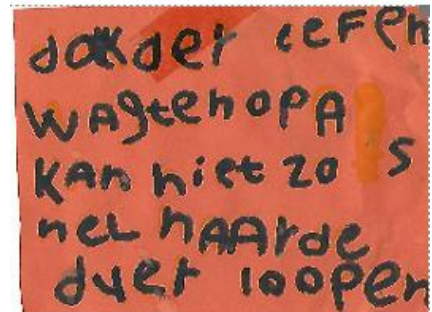 dokder eefen
wAgtenopA
KAn niet zo s
nel nAARde
duer loopen